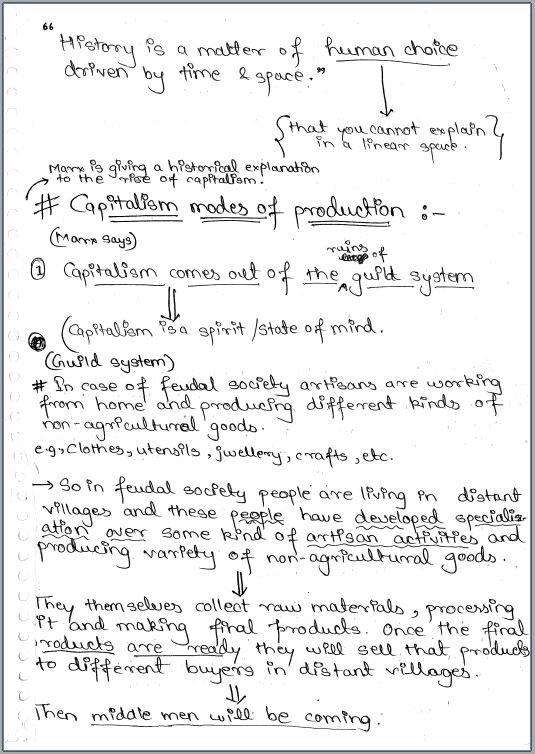 66
History is a matter of human choice
driven by time & space."
{that you cannot explain
in a linear space.}
Marx is giving a historical explanation
to the rise of capitalism.
# Capitalism modes of production :-
(Marx says)
① Capitalism comes out of the ruins of guild system
(Capitalism is a spirit /state of mind.
(Guild system)
# In case of feudal society artisans are working
from home and producing different kinds of
non-agricultural goods.
e.g, Clothes, utensils, jwellery, crafts, etc.
→ So in feudal society people are living in distant
villages and these people have developed specializ-
ation over some kind of artisan activities and
producing variety of non-agricultural goods.
They themselves collect raw materials, processing
it and making final products. Once the final
roducts are ready they will sell that products
to different buyers in distant villages.
Then middle men will be coming.